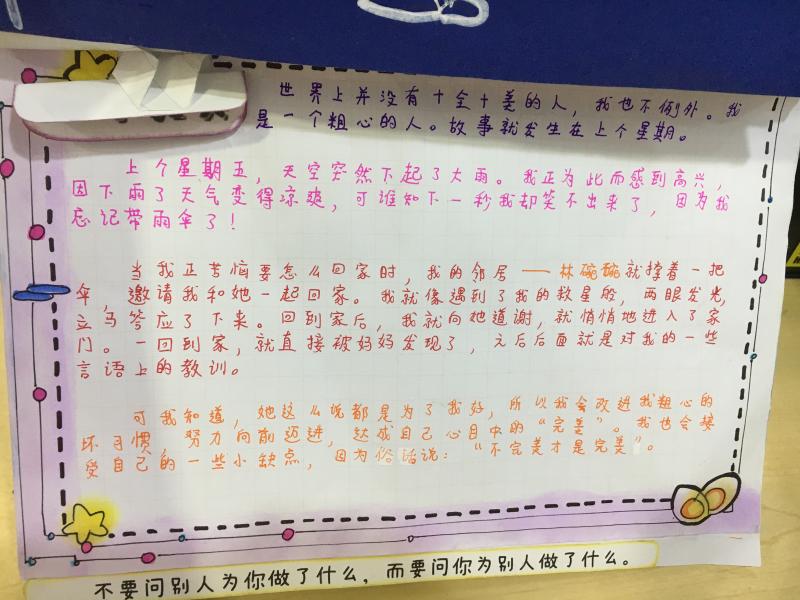 世界上并没有十全十美的人，我也不例外。我
是一个粗心的人。故事就发生在上个星期。
上个星期五，天空突然下起了大雨。我正为此而感到高兴，
因下雨了天气变得凉爽，可谁知下一秒我却笑不出来了，因为我
忘记带雨伞了！
当我正苦恼要怎么回家时，我的邻居——林碗碗就撑着一把
伞，邀请我和她一起回家。我就像遇到了我的救星般，两眼发光，
立马答应了下来。回到家后，我就向她道谢，就悄悄地进入了家
门。一回到家，就直接被妈妈发现了，之后后面就是对我的一些
言语上的教训。
可我知道，她这么说都是为了我好，所以我会改进我粗心的
坏习惯，努力向前迈进，达成自己心目中的“完美”。我也会接
受自己的一些小缺点，因为俗话说：“不完美才是完美”。
不要问别人为你做了什么，而要问你为别人做了什么。